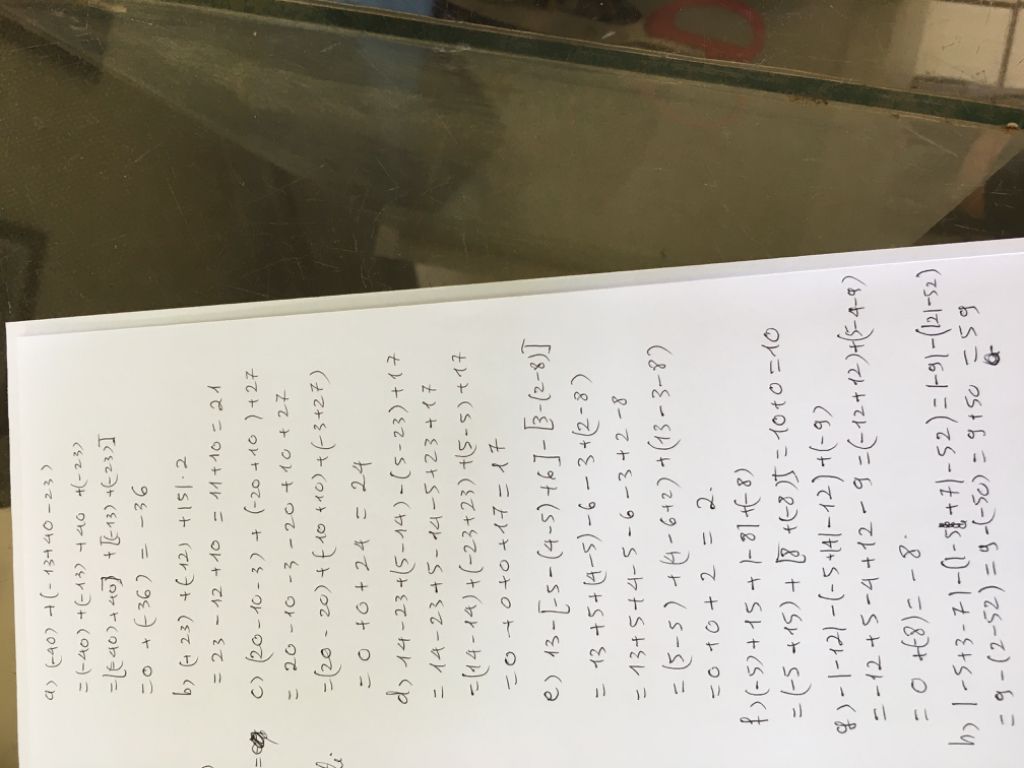 a) (-40) + (-13+40-23)
= (-40) + (-13) + 40 + (-23)
= [(-40) + 40] + [(-13) + (-23)]
= 0 + (-36) = -36
b) (+23) + (-12) + |5|.2
= 23 - 12 + 10 = 11 + 10 = 21
c) (20-10-3) + (-20+10) + 27
= 20 - 10 - 3 - 20 + 10 + 27
= (20 - 20) + (-10 + 10) + (-3 + 27)
= 0 + 0 + 24 = 24
d) 14 - 23 + (5-14) - (5-23) + 17
= 14 - 23 + 5 - 14 - 5 + 23 + 17
= (14 - 14) + (-23 + 23) + (5-5) + 17
= 0 + 0 + 0 + 17 = 17
e) 13 - [-5 - (4-5) + 6] - [3 - (2-8)]
= 13 + 5 + (4-5) - 6 - 3 + (2-8)
= 13 + 5 + 4 - 5 - 6 - 3 + 2 - 8
= (5-5) + (4-6+2) + (13-3-8)
= 0 + 0 + 2 = 2.
f) (-5) + 15 + |-8| + (-8)
= (-5 + 15) + [8 + (-8)] = 10 + 0 = 10
g) -|-12| - (-5 + |4| - 12) + (-9)
= -12 + 5 - 4 + 12 - 9 = (-12 + 12) + (5-4-9)
= 0 + (-8) = -8.
h) |-5+3-7| - (|-5+7|-52) = |-9| - (|2|-52)
= 9 - (2-52) = 9 - (-50) = 9 + 50 = 59